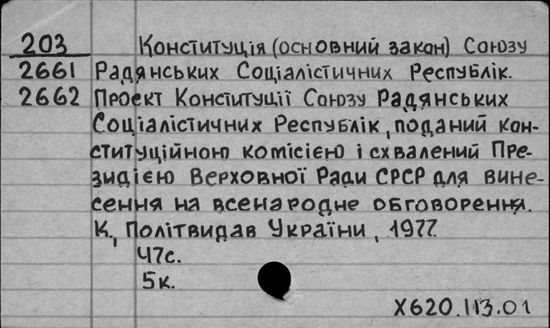 203 Конституція (основний закон) Союзу
2661 Радянських Соціалістичних Республік.
2662 Проект Конституції Союзу Радянських
Соціалістичних Республік, поданий кон-
ституційною комісією і схвалений Пре-
зидією Верховної Ради СРСР для вине-
сення на всенародне обговорення.
К., Політвидав України, 1977.
47с.
5к.
Х620.113.01